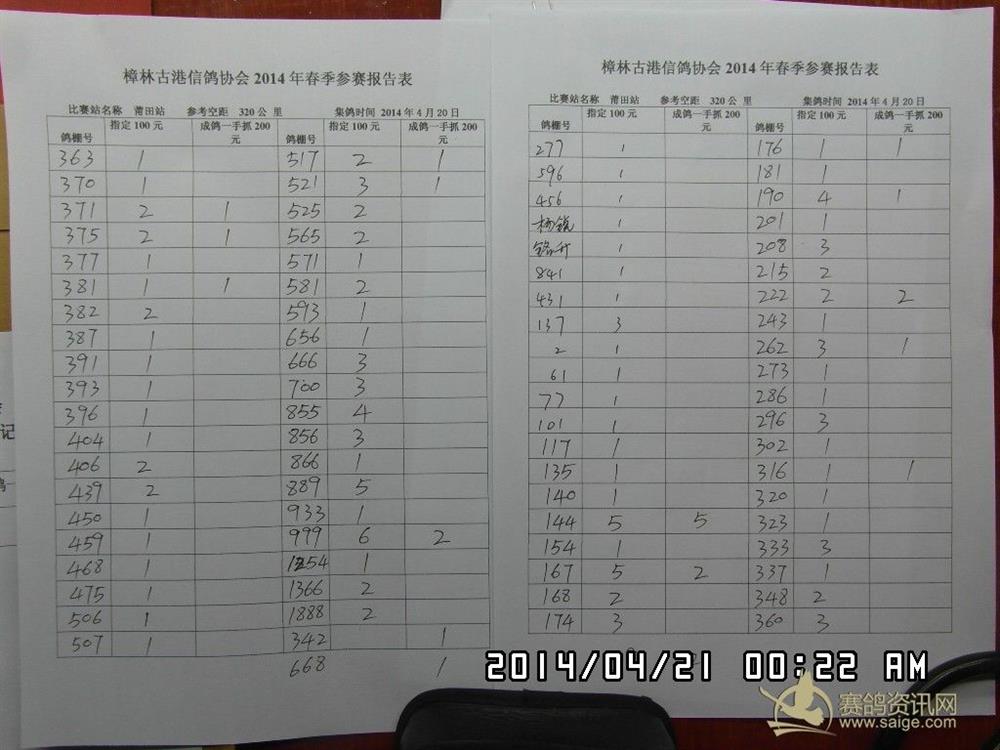 樟林古港信鸽协会 2014 年春季参赛报告表
比赛站名称 莆田站 参考空距 320 公 里 集鸽时间 2014 年 4 月 20 日
鸽棚号 指定 100 元 成鸽一手抓 200 元 鸽棚号 指定 100 元 成鸽一手抓 200 元
363 1 517 2 1
370 1 521 3 1
371 2 1 525 2
375 2 1 565 2
377 1 571 1
381 1 1 581 2
382 2 593 1
387 1 656 1
391 1 666 3
393 1 700 3
396 1 855 4
404 1 856 3
406 2 866 1
439 2 889 5
450 1 933 1
459 1 999 6 2
468 1 1254 1
475 1 1366 2
506 1 1888 2
507 1 342 1
668 1
樟林古港信鸽协会 2014 年春季参赛报告表
比赛站名称 莆田站 参考空距 320 公 里 集鸽时间 2014 年 4 月 20 日
鸽棚号 指定 100 元 成鸽一手抓 200 元 鸽棚号 指定 100 元 成鸽一手抓 200 元
277 1 176 1 1
596 1 181 1
456 1 190 4 1
1 201 1
1 208 3
841 1 215 2
431 1 222 2 2
137 3 243 1
2 1 262 3 1
61 1 273 1
77 1 286 1
101 1 296 3
117 1 302 1
135 1 316 1 1
140 1 320 1
144 5 5 323 1
154 1 333 3
167 5 2 337 1
168 2 348 2
174 3 360 3
记
2014/04/21 00:22 AM
赛鸽资讯网
www.saige.com